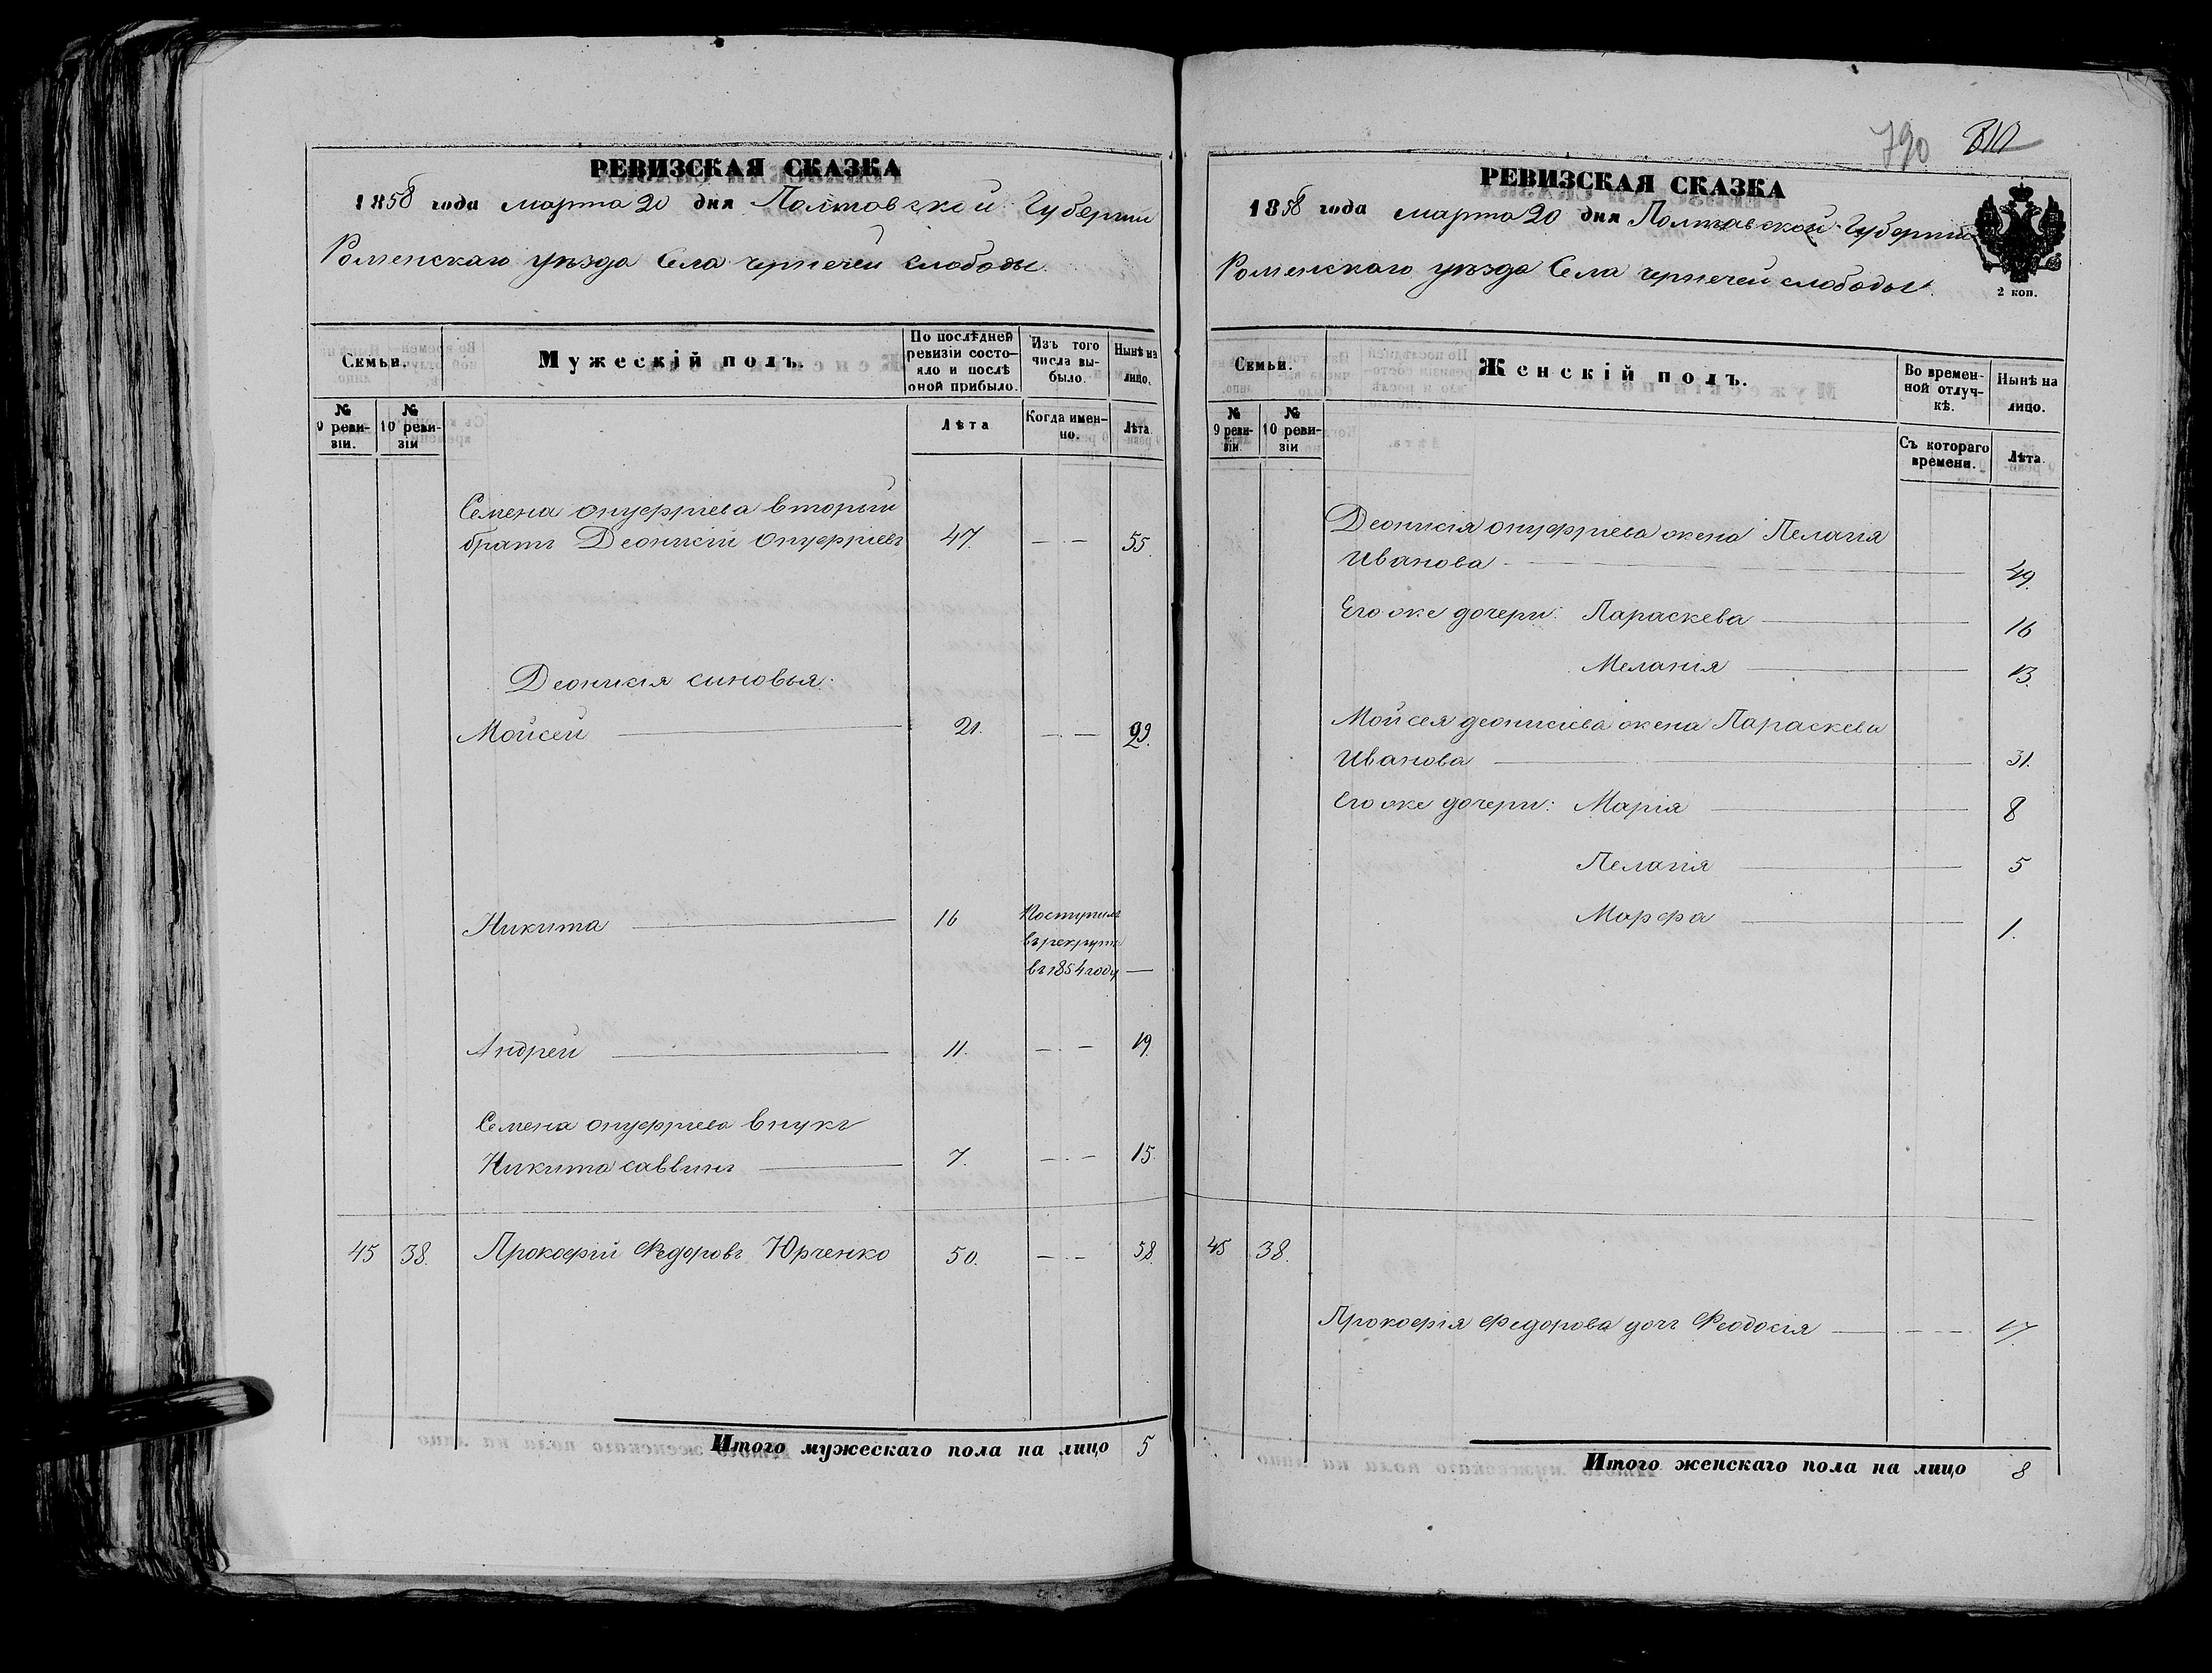 РЕВИЗСКАЯ СКАЗКА
1858 года марта 20 дня Полтавской Губернии
Роменскаго уезда Села чернечей слободы.
Семьи.
Мужескій полъ.
По послѣдней ревизіи состояло и послѣ оной прибыло.
Изъ того числа выбыло.
Нынѣ на лицо.
№ 9 ревизіи.
№ 10 ревизіи
Лѣта
Когда именно.
Лѣта
Семена онуфріева вторый
братъ Деонисій Онуфріевъ 47. — — 55.
Деонисія синовья:
Мойсей 21. — — 29.
Никита 16 Поступилъ
въ рекруты
въ 1854 году —
Андрей 11. — — 19.
Семена онуфріева внукъ
Никита саввинъ 7. — — 15.
45 38. Прокофій Федоровъ Юрченко 50. — — 58.
Итого мужескаго пола на лицо 5
790
РЕВИЗСКАЯ СКАЗКА
1858 года марта 20 дня Полтавской Губерній
Роменскаго уезда Села чернечей слободы.
2 коп.
Семьи.
Женскій полъ.
Во временной отлучкѣ.
Нынѣ на лицо.
№ 9 ревизіи.
№ 10 ревизіи
Съ котораго времени.
Лѣта.
Деонисія онуфріева жена Пелагія
Иванова 49.
Его же дочери: Параскева 16
Меланія 13.
Мойсея деонисіева жена Параскева
Иванова 31.
Его же дочери: Марія 8
Пелагія 5
Марфа 1.
45 38.
Прокофія Федорова дочь Феодосія — — — 17.
Итого женскаго пола на лицо 8